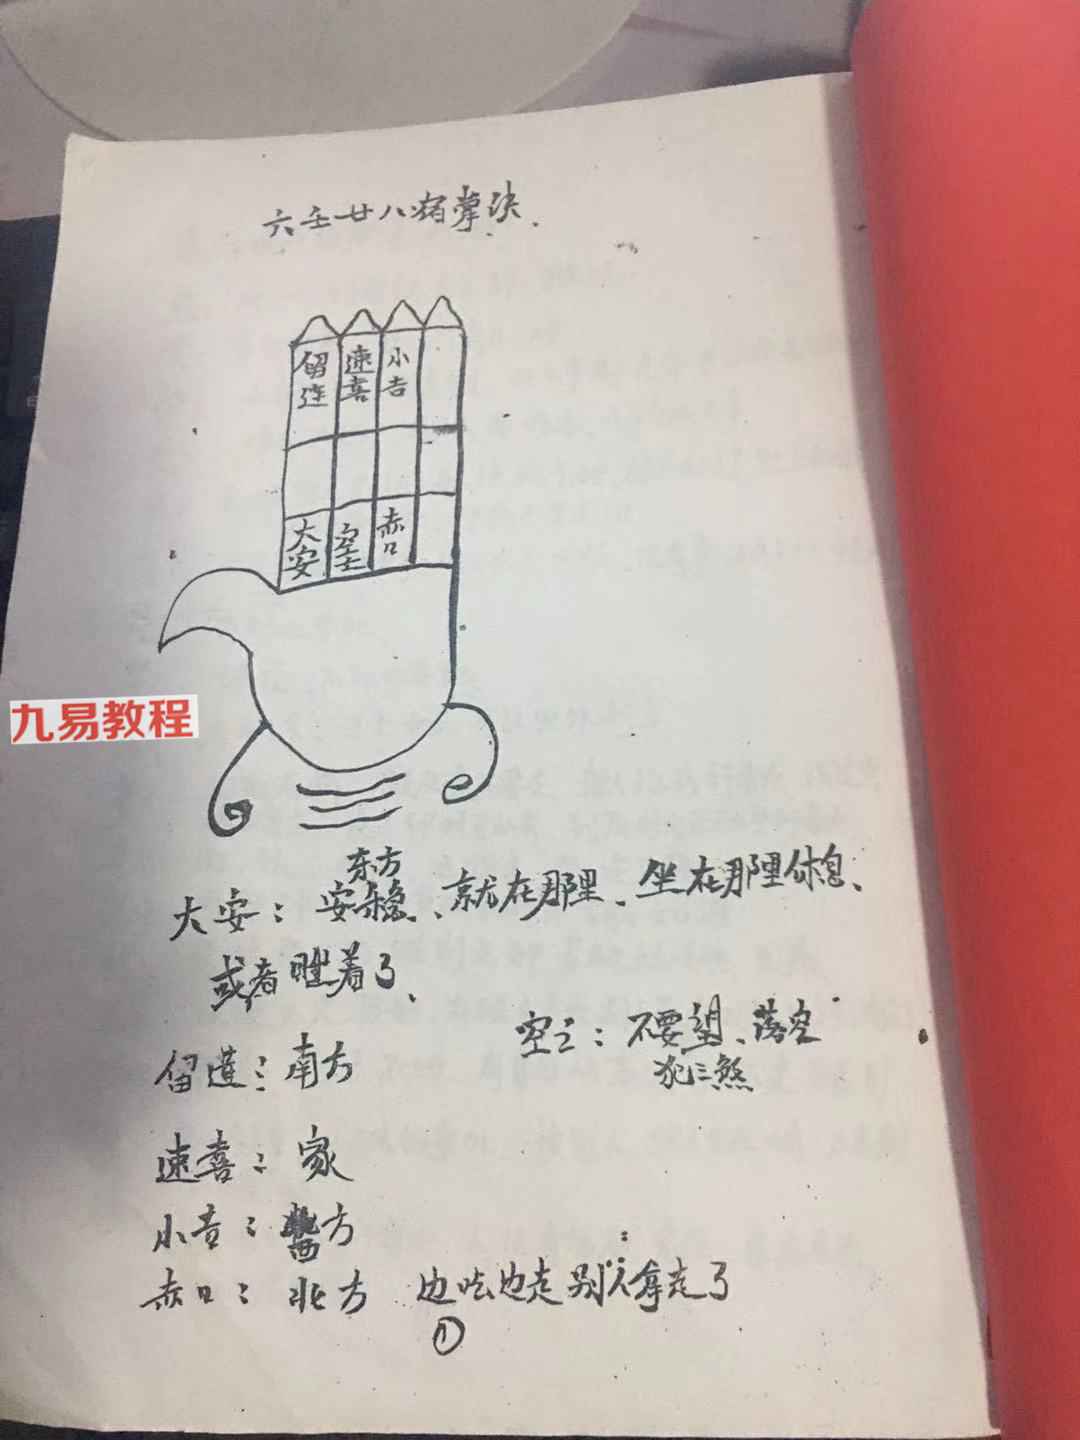 六壬廿八宿掌决.
留连 速喜 小吉
大安 空亡 赤口
九易教程
东方
大安：安稳、就在那里、坐在那里休息、
或者睡着了、
空亡：不要望、落空
犯三煞
留莲：南方
速喜：家
小吉：西方
赤口：北方 边吃边走别人拿走了
①